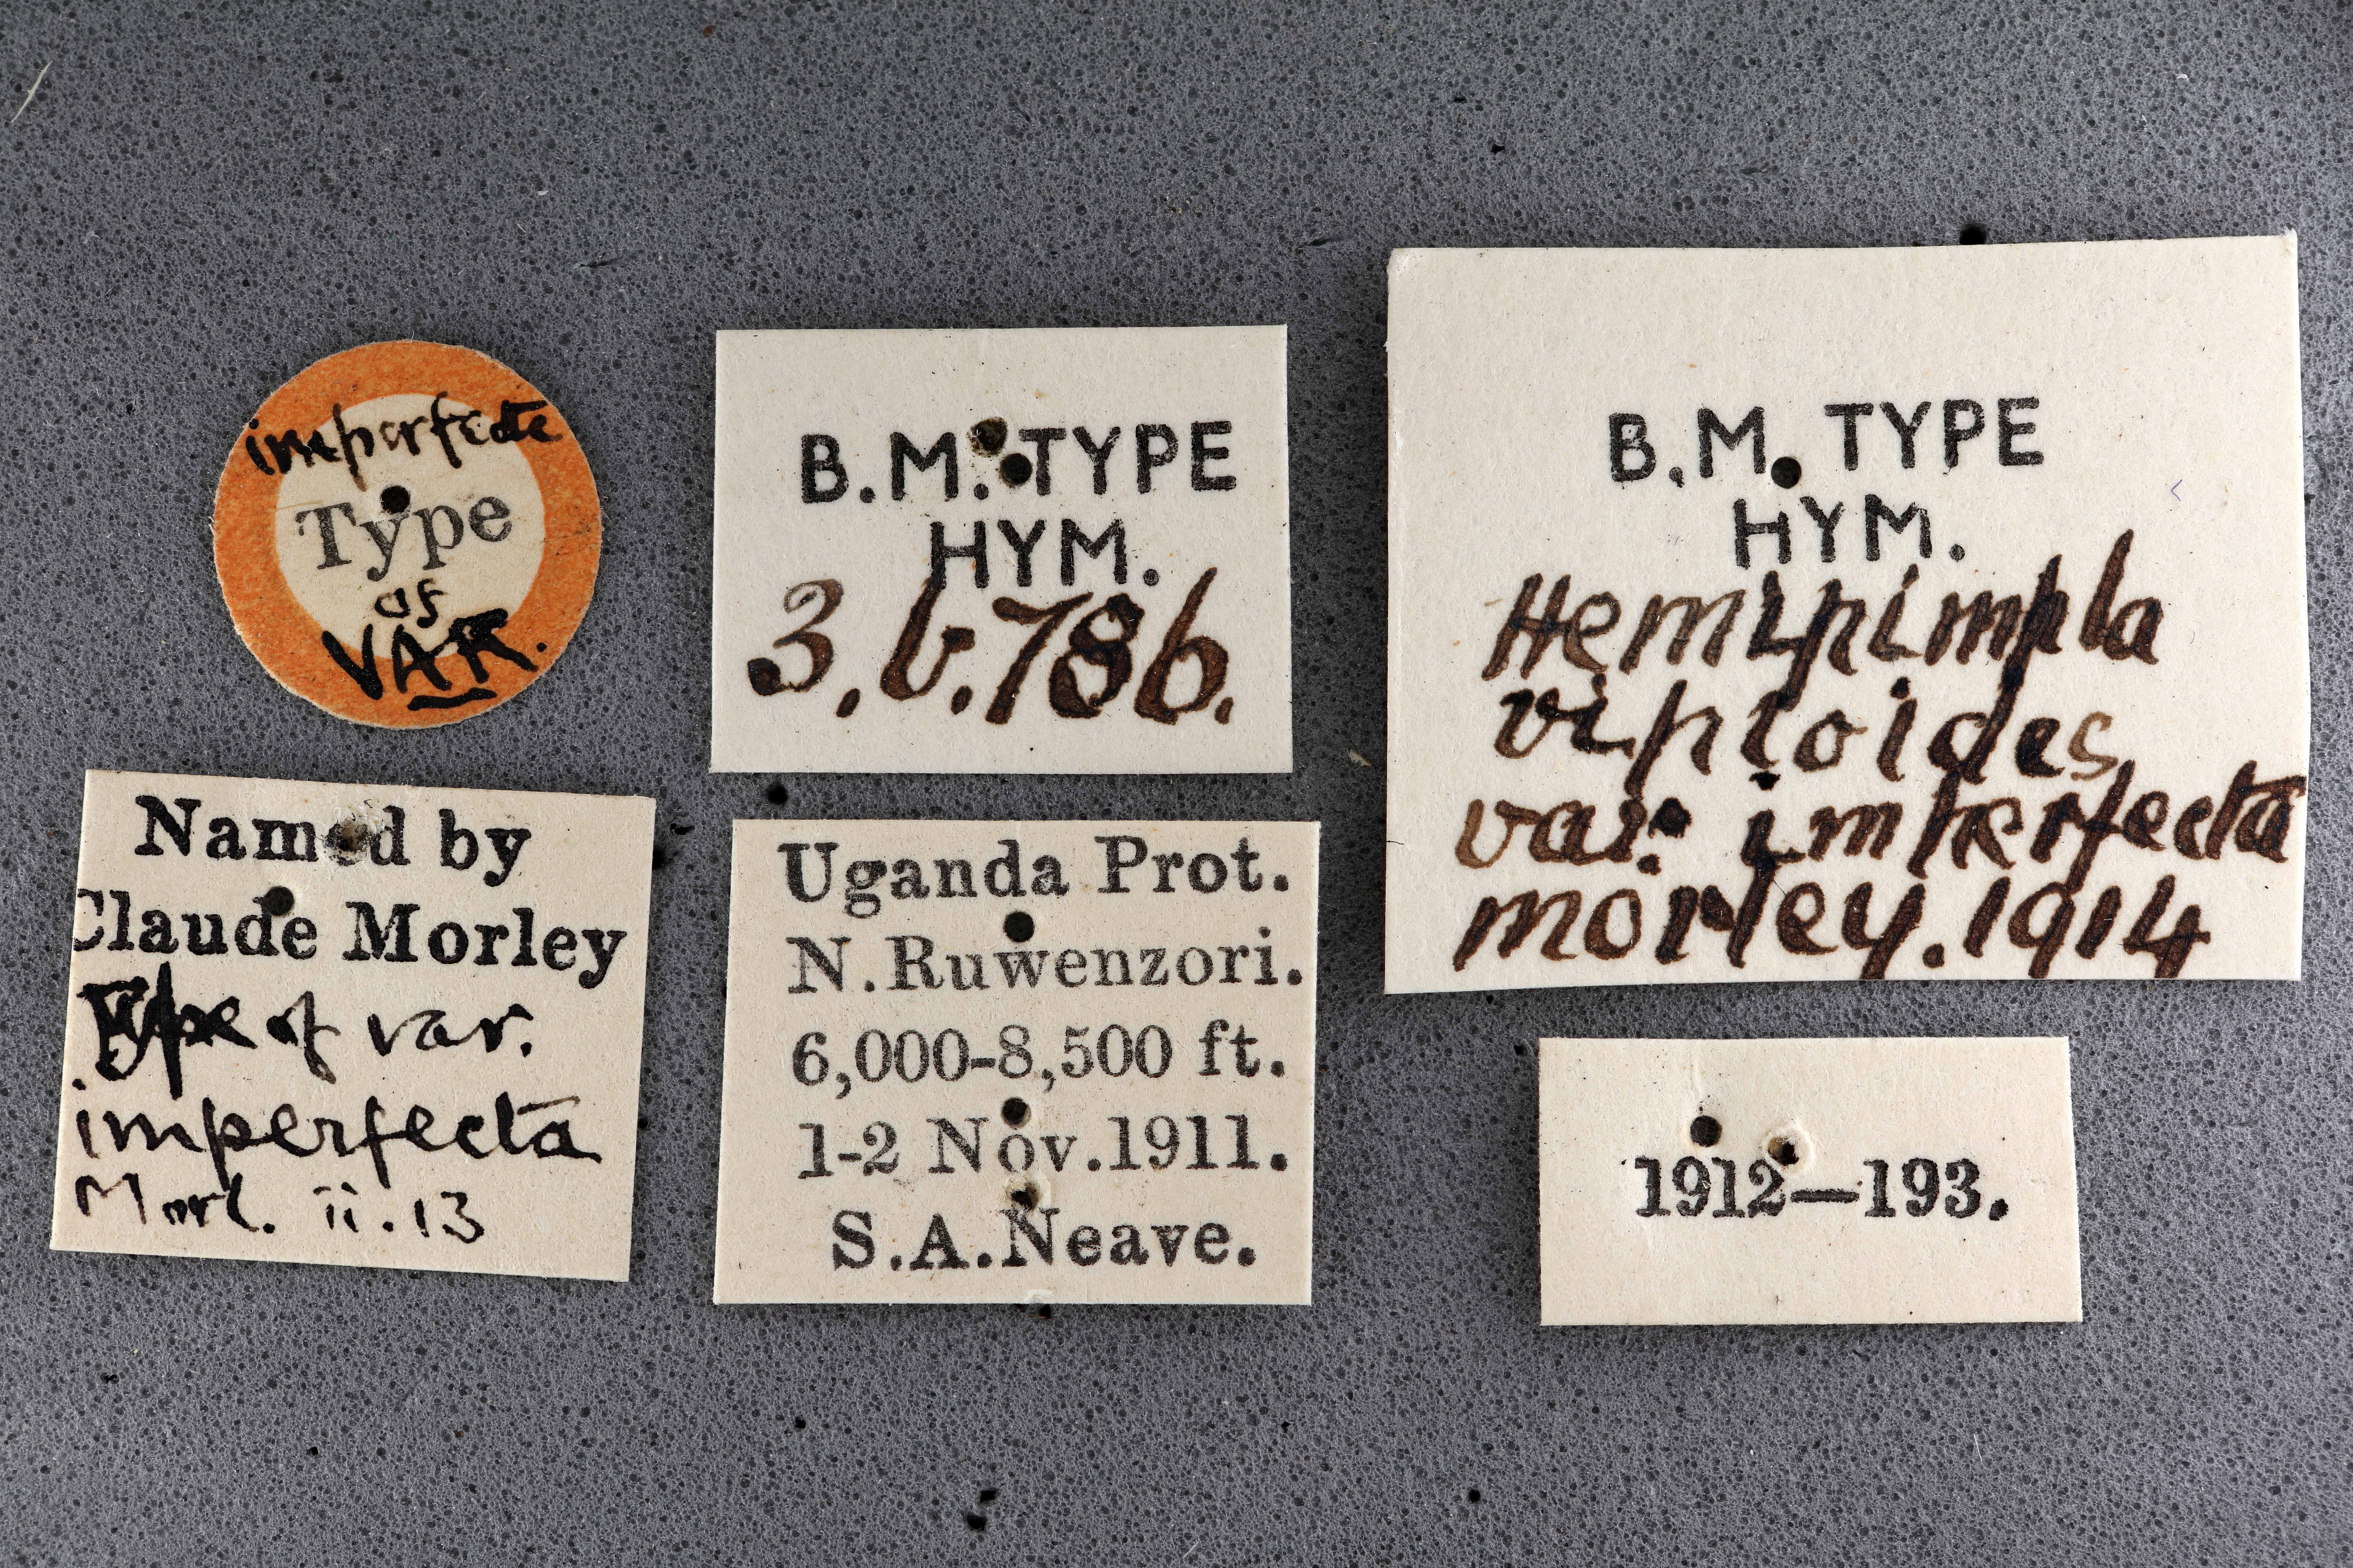 imperfecta
Type
of
VAR.
B.M. TYPE
HYM.
3.b.786.
B.M. TYPE
HYM.
Hemipimpla
vipioides
var. imperfecta
morley. 1914
Named by
Claude Morley
Type of var.
imperfecta
Morl. ii.13
Uganda Prot.
N. Ruwenzori.
6,000-8,500 ft.
1-2 Nov. 1911.
S.A. Neave.
1912—193.